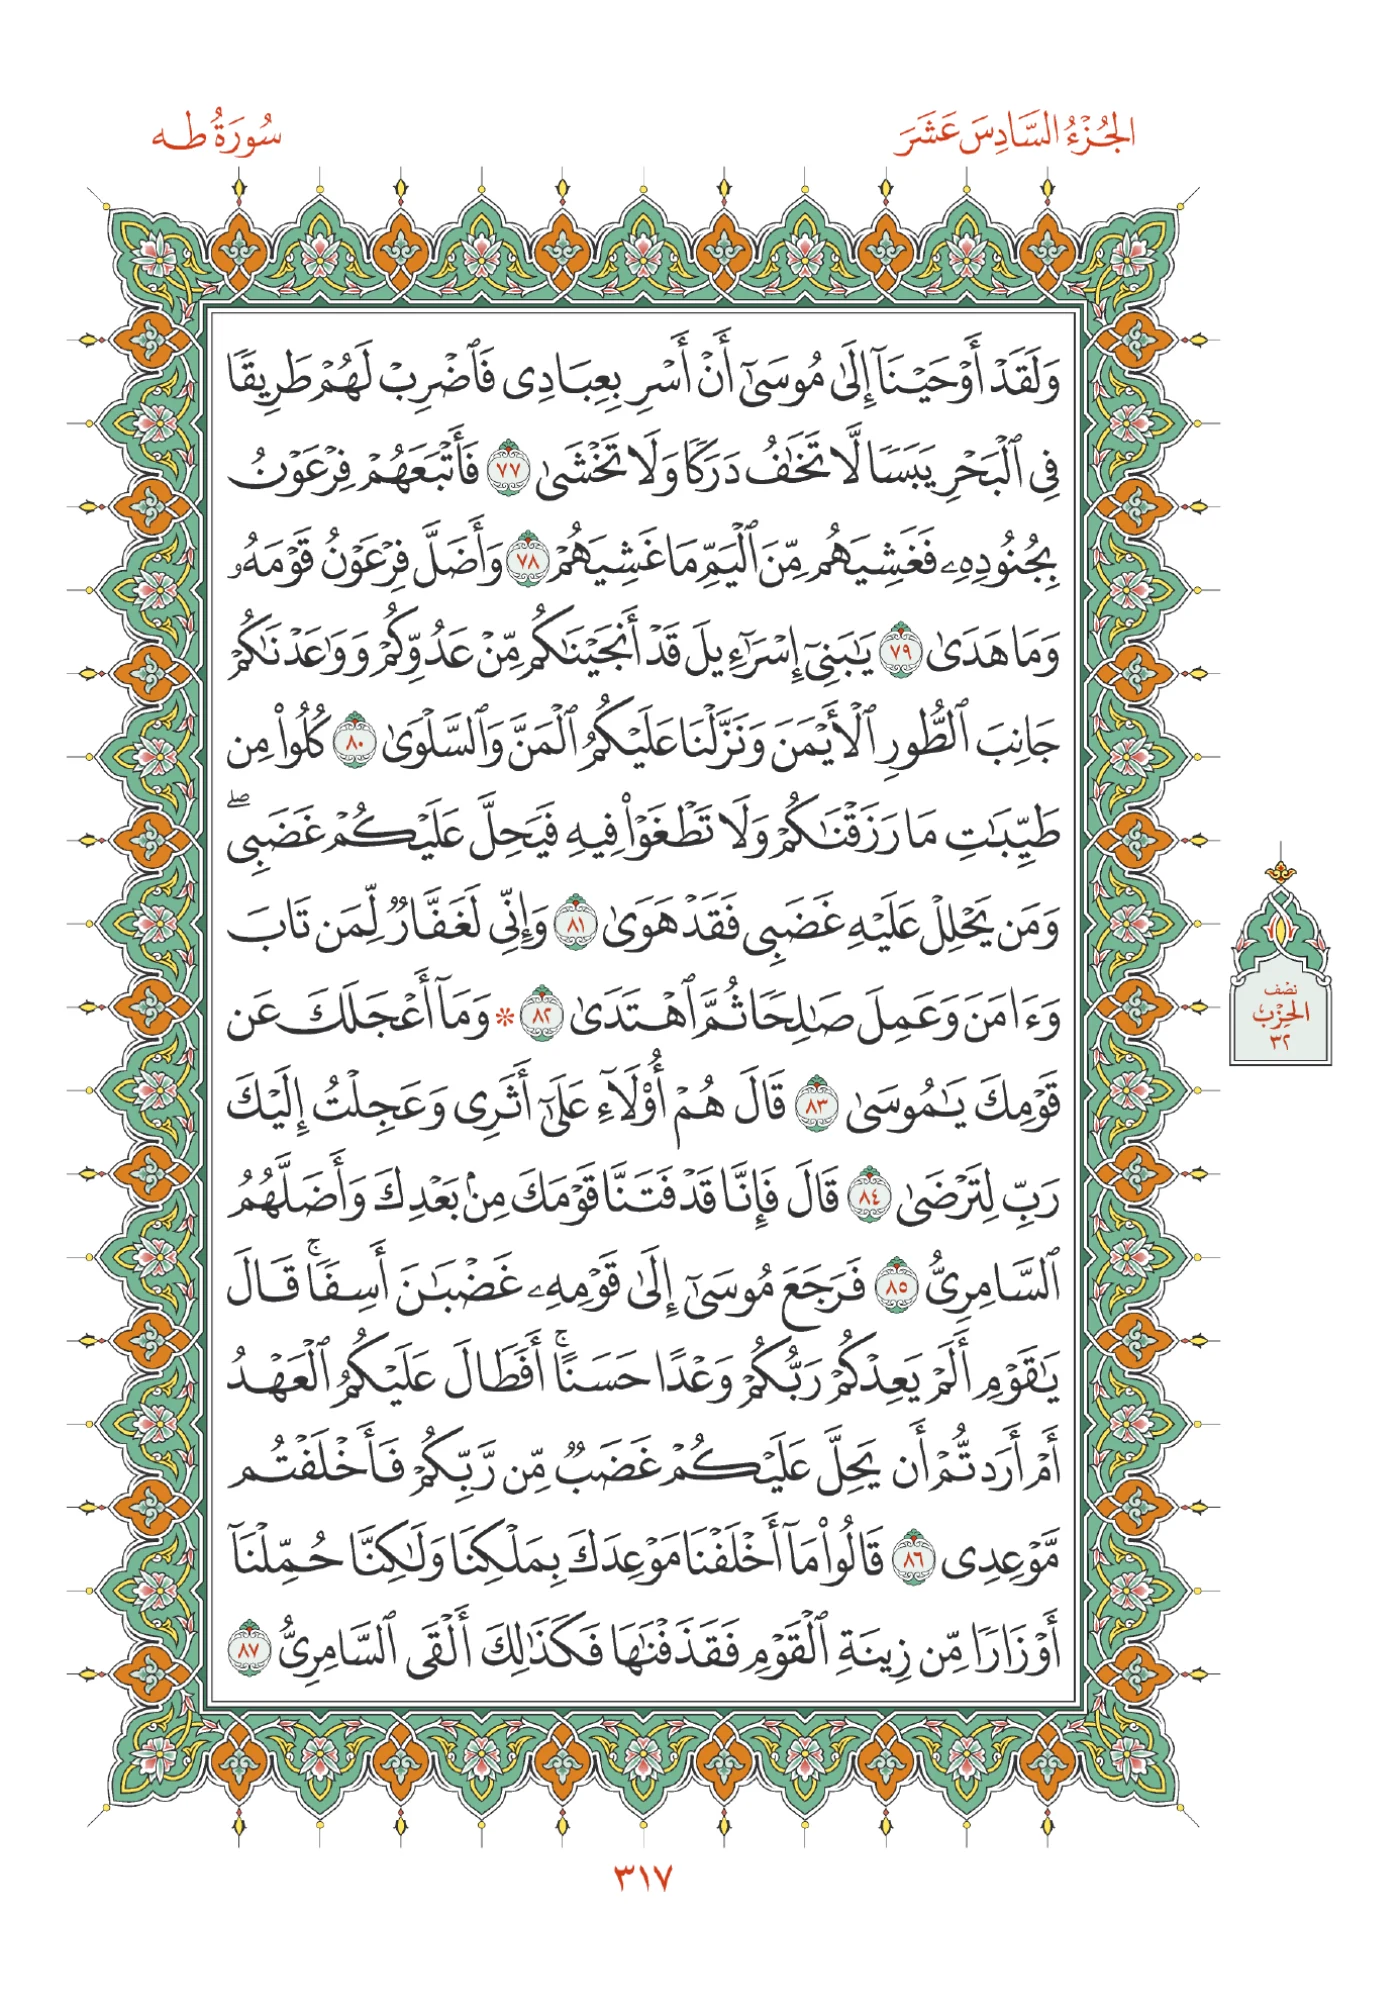 الجُزْءُ السَّادِسَ عَشَرَ
سُورَةُ طه
وَلَقَدْ أَوْحَيْنَآ إِلَىٰ مُوسَىٰٓ أَنْ أَسْرِ بِعِبَادِى فَٱضْرِبْ لَهُمْ طَرِيقًا
فِى ٱلْبَحْرِ يَبَسًا لَّا تَخَٰفُ دَرَكًا وَلَا تَخْشَىٰ ٧٧ فَأَتْبَعَهُمْ فِرْعَوْنُ
بِجُنُودِهِۦ فَغَشِيَهُم مِّنَ ٱلْيَمِّ مَا غَشِيَهُمْ ٧٨ وَأَضَلَّ فِرْعَوْنُ قَوْمَهُۥ
وَمَا هَدَىٰ ٧٩ يَٰبَنِىٓ إِسْرَٰٓءِيلَ قَدْ أَنجَيْنَٰكُم مِّنْ عَدُوِّكُمْ وَوَٰعَدْنَٰكُمْ
جَانِبَ ٱلطُّورِ ٱلْأَيْمَنَ وَنَزَّلْنَا عَلَيْكُمُ ٱلْمَنَّ وَٱلسَّلْوَىٰ ٨٠ كُلُوا۟ مِن
طَيِّبَٰتِ مَا رَزَقْنَٰكُمْ وَلَا تَطْغَوْا۟ فِيهِ فَيَحِلَّ عَلَيْكُمْ غَضَبِى ۖ
وَمَن يَحْلِلْ عَلَيْهِ غَضَبِى فَقَدْ هَوَىٰ ٨١ وَإِنِّى لَغَفَّارٌ لِّمَن تَابَ
وَءَامَنَ وَعَمِلَ صَٰلِحًا ثُمَّ ٱهْتَدَىٰ ٨٢ * وَمَآ أَعْجَلَكَ عَن
قَوْمِكَ يَٰمُوسَىٰ ٨٣ قَالَ هُمْ أُو۟لَآءِ عَلَىٰٓ أَثَرِى وَعَجِلْتُ إِلَيْكَ
رَبِّ لِتَرْضَىٰ ٨٤ قَالَ فَإِنَّا قَدْ فَتَنَّا قَوْمَكَ مِنۢ بَعْدِكَ وَأَضَلَّهُمُ
ٱلسَّامِرِىُّ ٨٥ فَرَجَعَ مُوسَىٰٓ إِلَىٰ قَوْمِهِۦ غَضْبَٰنَ أَسِفًا ۚ قَالَ
يَٰقَوْمِ أَلَمْ يَعِدْكُمْ رَبُّكُمْ وَعْدًا حَسَنًا ۚ أَفَطَالَ عَلَيْكُمُ ٱلْعَهْدُ
أَمْ أَرَدتُّمْ أَن يَحِلَّ عَلَيْكُمْ غَضَبٌ مِّن رَّبِّكُمْ فَأَخْلَفْتُم
مَّوْعِدِى ٨٦ قَالُوا۟ مَآ أَخْلَفْنَا مَوْعِدَكَ بِمَلْكِنَا وَلَٰكِنَّا حُمِّلْنَآ
أَوْزَارًا مِّن زِينَةِ ٱلْقَوْمِ فَقَذَفْنَٰهَا فَكَذَٰلِكَ أَلْقَى ٱلسَّامِرِىُّ ٨٧
نصف
الحِزْب
٣٢
٣١٧